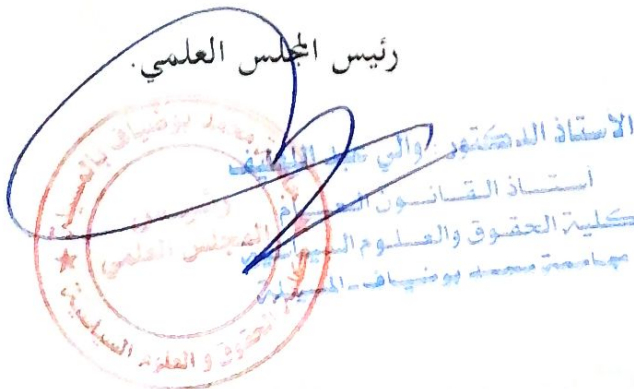 رئيس المجلس العلمي.
الأستاذ الدكتور: والي عبد اللطيف
أستاذ القانون العام
كلية الحقوق والعلوم السياسية
جامعة محمد بوضياف - المسيلة
محمد بوضياف بالمسيلة
رئيس
المجلس العلمي
الحقوق و العلوم السياسية